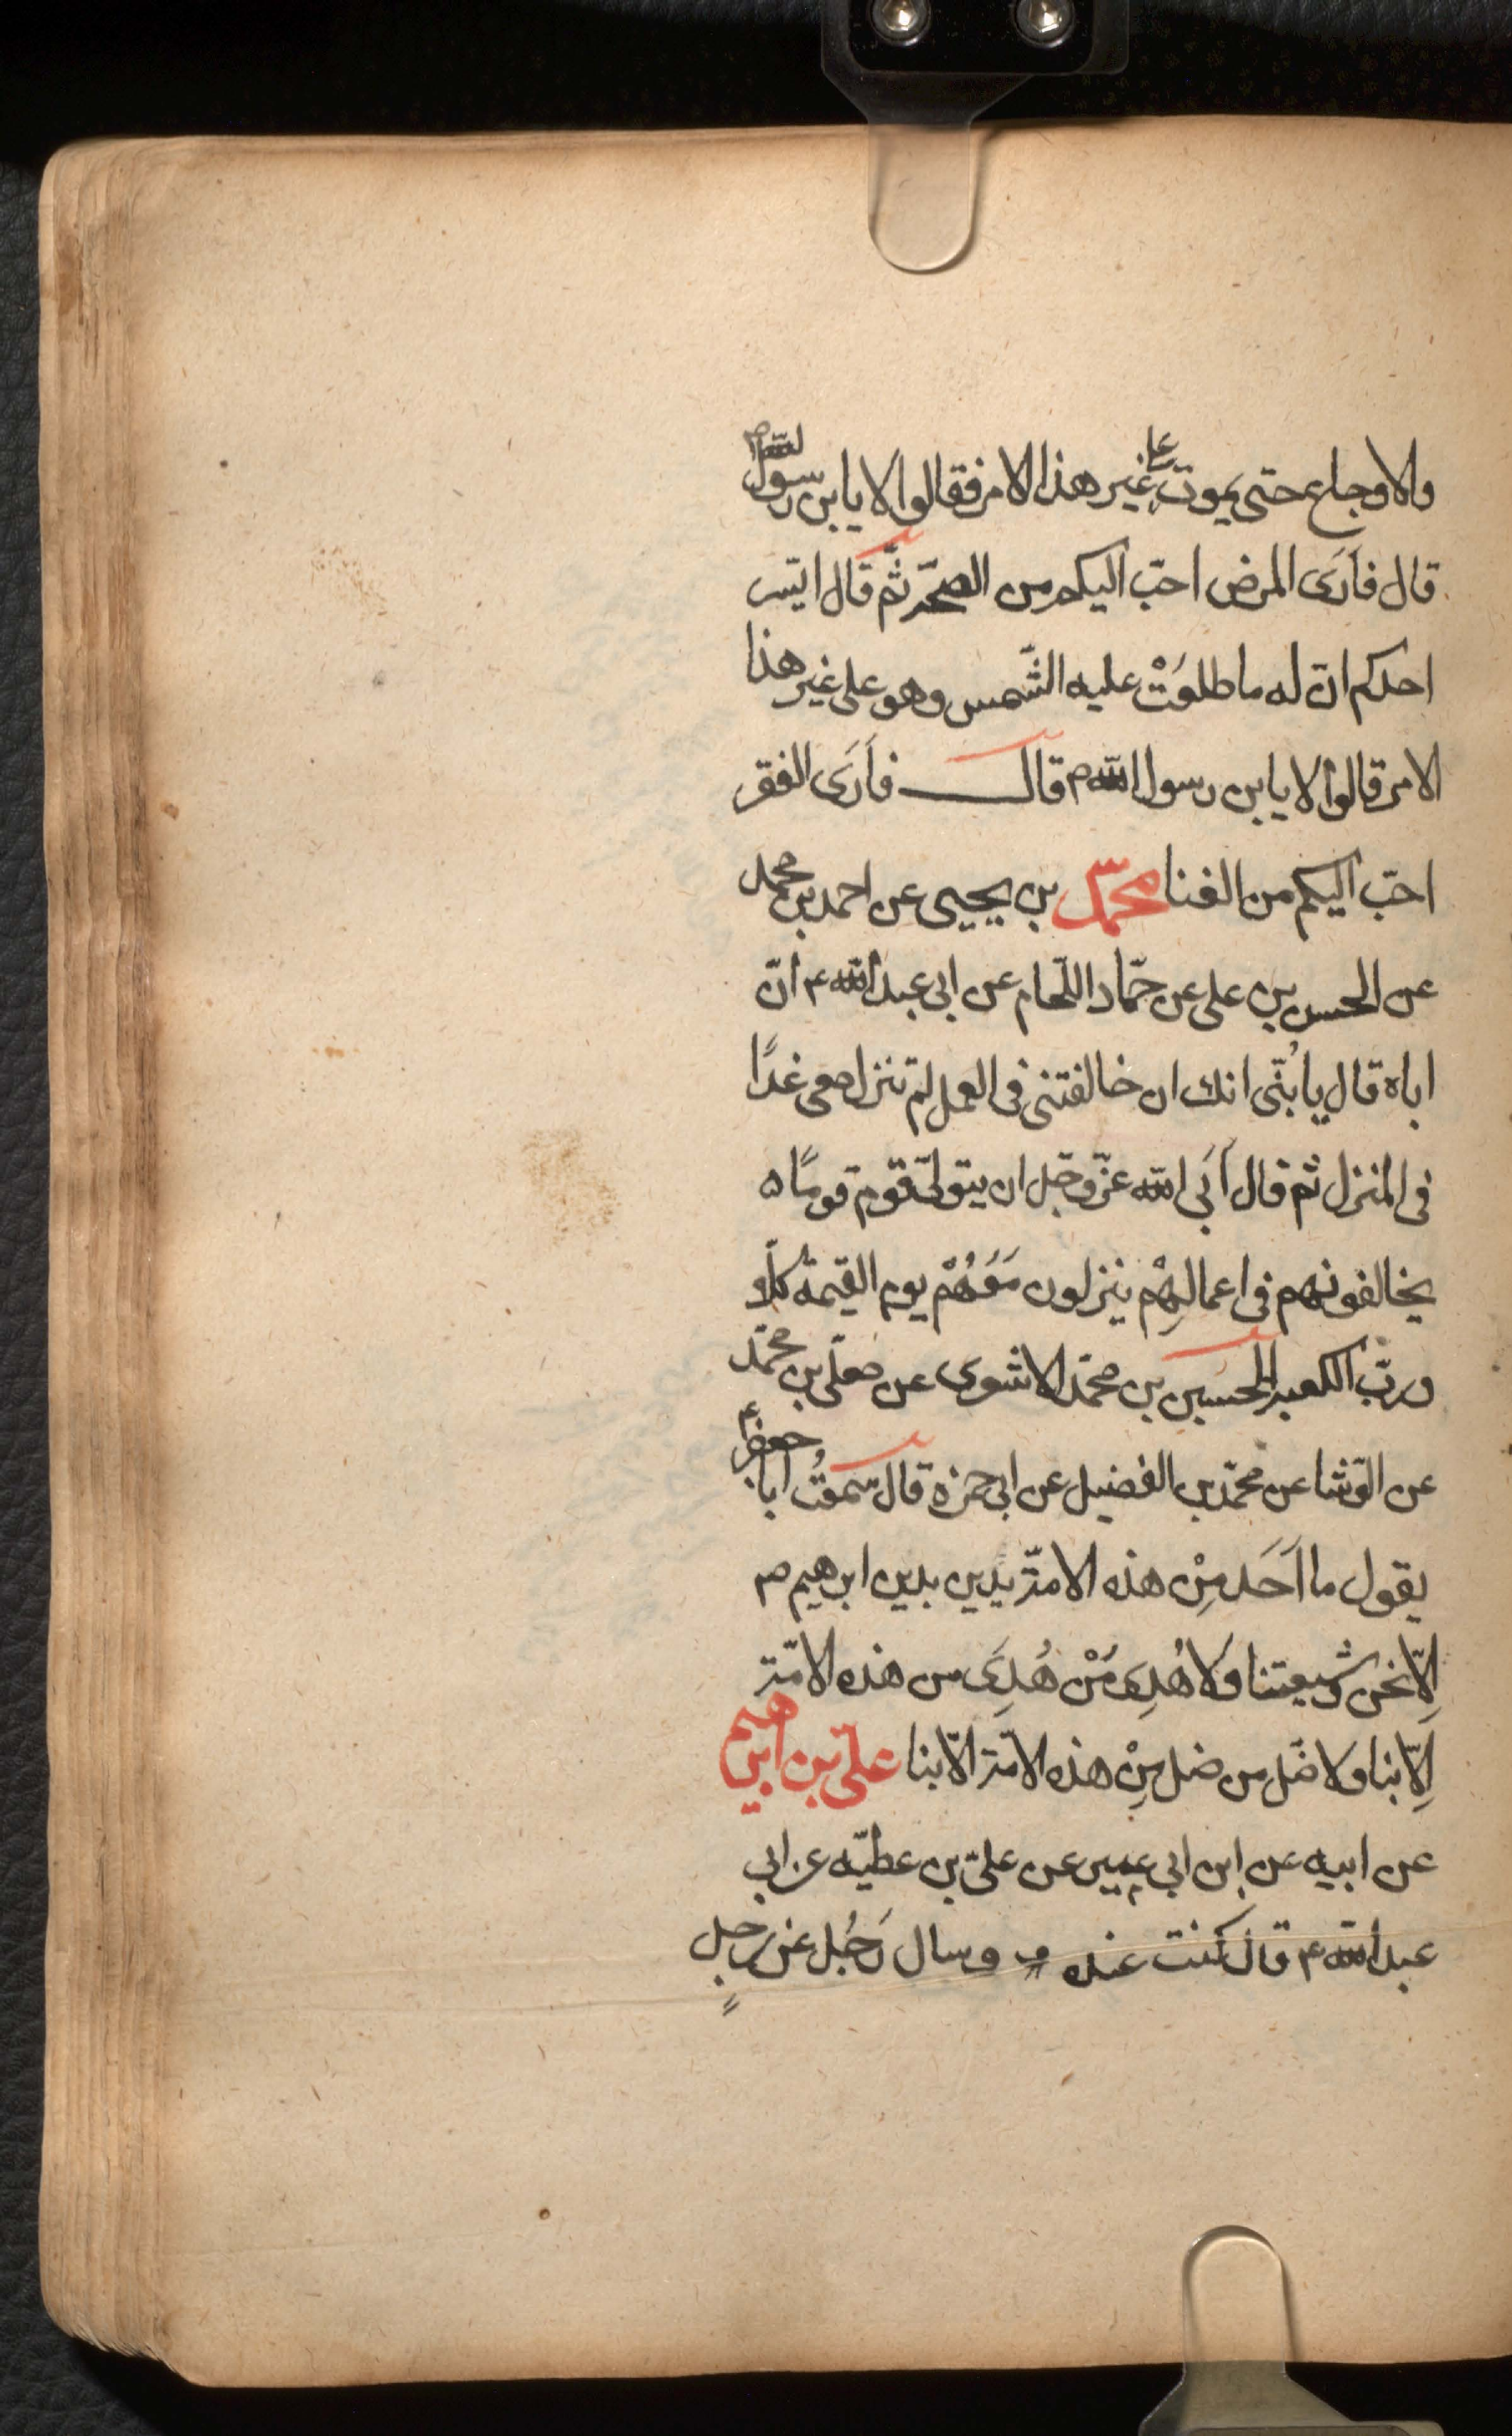 والاوجاع حتى يموت على غير هذا الامر فقالوا لا يا بن رسول الله ص
قال فارَى المرض احبّ اليكم من الصحّة ثمّ قال ايسر
احدكم انّ له ما طلعَتْ عليه الشّمس وهو على غير هذا
الامر قالوا لا يا بن رسول الله ص قال فاَرَى الفقر
احبّ اليكم من الغنا محمّد بن يحيى عن احمد بن محمد
عن الحسن بن على عن حمّاد اللّحام عن ابى عبد الله ع انّ
اباه قال يا بُنّى انك ان خالفتنى فى العمل لم تنزل معى غدًا
فى المنزل ثم قال اَبَى الله عزّ وجّل ان يتولّى قوم قومًا ه
يخالفونهم فى اعمالهِمْ ينزلون مَعَهُمْ يوم القيمة كلّا و
وربّ الكعبة الحسين بن محمّد الاشعرى عن معلّى بن محمّد
عن الوّشا عن محمّد بن الفضيل عن ابى حمزة قال سمعتُ ابا جعفر ع
يقول ما اَحَد مِنْ هذه الامّة يدين بدين ابرهيم ص
اِلّا نحن وشيعتنا وَلا هُدِىَ مَنْ هُدِىَ من هذه الامّة
اِلّا بنا ولا ضَّل من ضل مِنْ هذه الامّة الّا بنا علىّ بن ابرهيم
عن ابيه عن ابن ابى عمير عن علىّ بن عطيّه عن ابى
عبد الله ع قال كنت عنده و وسال رَجُل عن رجلٍ